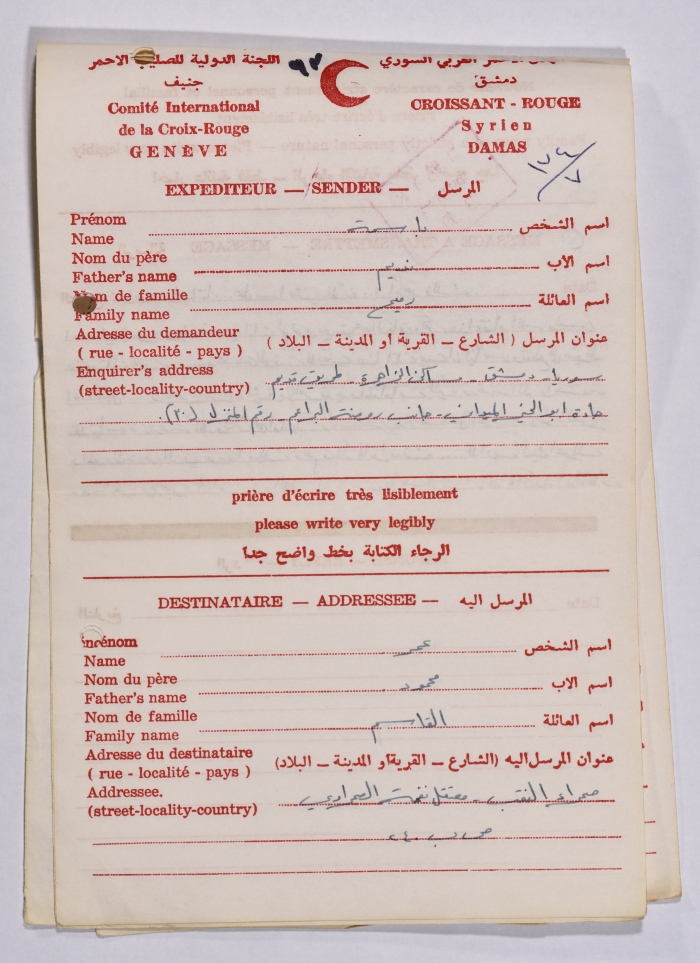 اللجنة الدولية للصليب الاحمر
جنيف
Comité International
de la Croix-Rouge
GENÈVE
٩٢
الاحمر العربي السوري
دمشق
CROISSANT - ROUGE
Syrien
DAMAS
EXPEDITEUR — SENDER — المرسل
Prénom
Name باسمة اسم الشخص
Nom du père
Father's name نديم اسم الأب
Nom de famille
Family name اسم العائلة
Adresse du demandeur
( rue - localité - pays ) عنوان المرسل ( الشارع ــ القرية او المدينة ــ البلاد )
Enquirer's address
(street-locality-country) سوريا - دمشق - مساكن الزاهرة طريق قديم
جادة ابو الحي الميداني - جانب روضة البراعم رقم المنزل (٣٠).
prière d'écrire très lisiblement
please write very legibly
الرجاء الكتابة بخط واضح جدا
DESTINATAIRE — ADDRESSEE — المرسل اليه
Prénom
Name عمر اسم الشخص
Nom du père
Father's name محمود اسم الاب
Nom de famille
Family name القاسم اسم العائلة
Adresse du destinataire
( rue - localité - pays ) عنوان المرسل اليه (الشارع ــ القرية او المدينة ــ البلاد)
Addressee.
(street-locality-country) صحراء النقب - معتقل نفحة الصحراوي
ص ب ٢٤٠